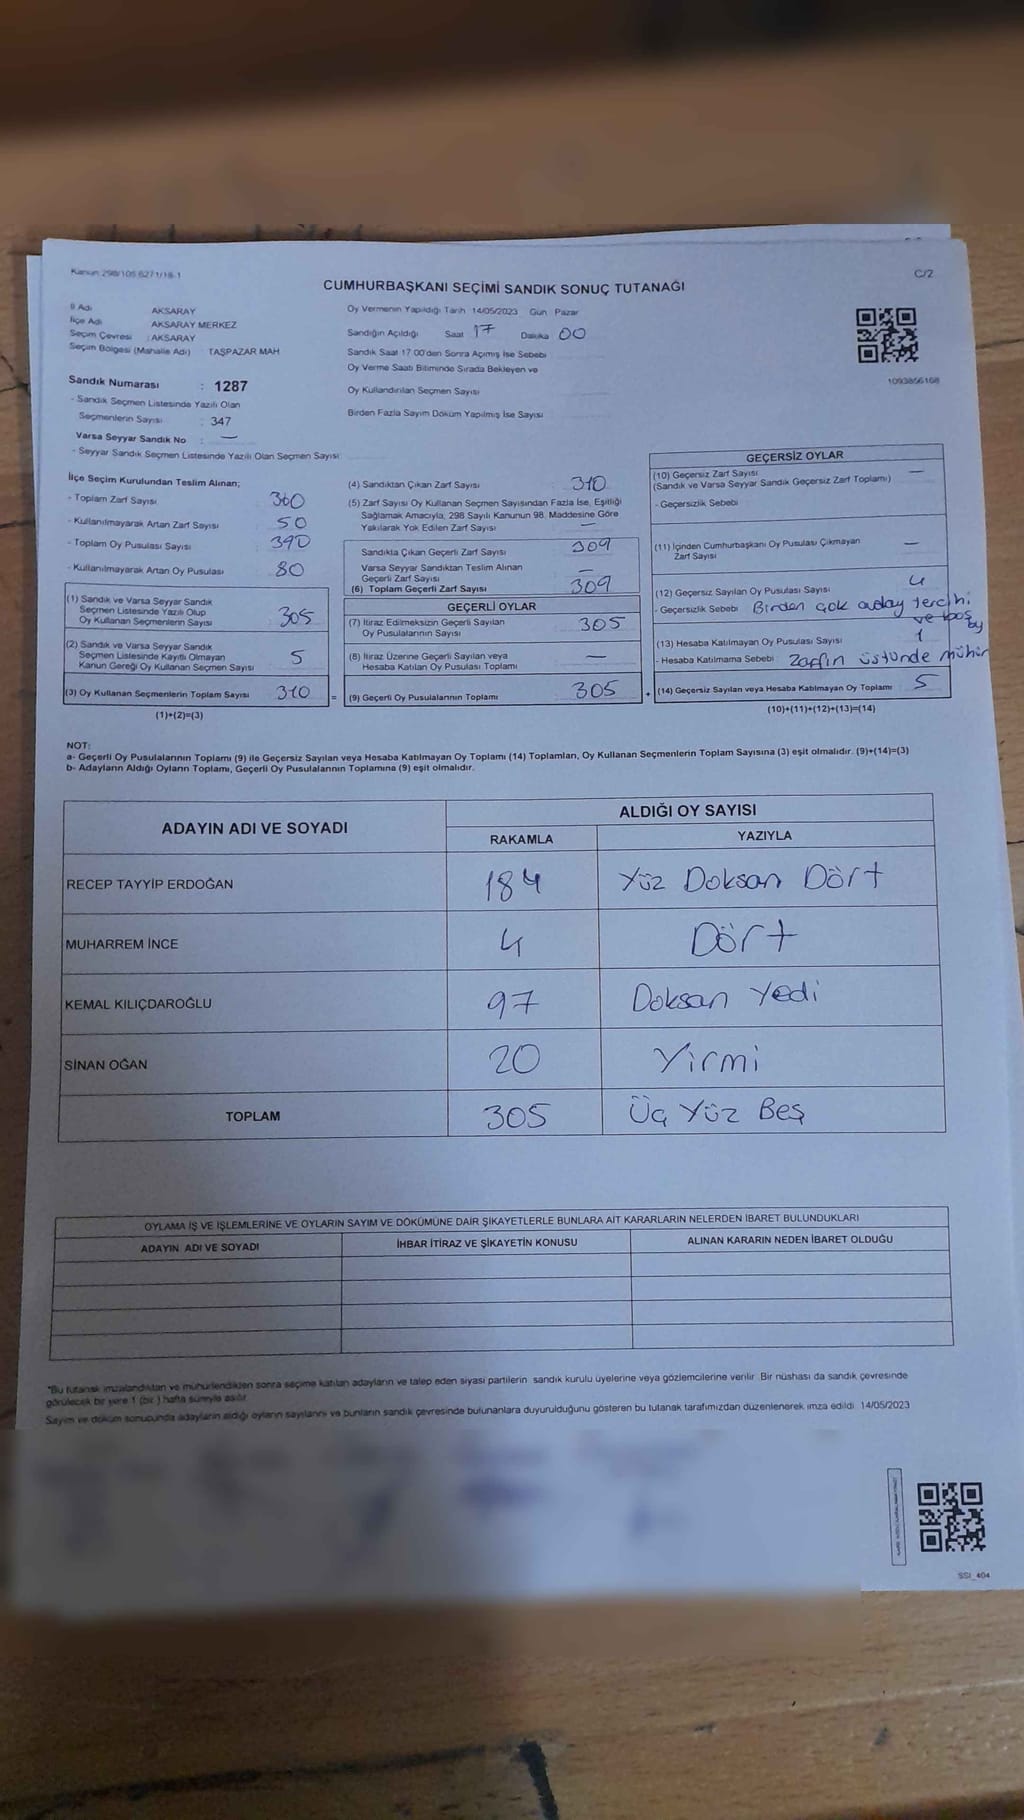 Kanun 298/105 6271/18-1
C/2
CUMHURBAŞKANI SEÇİMİ SANDIK SONUÇ TUTANAĞI
İl Adı AKSARAY
İlçe Adı AKSARAY MERKEZ
Seçim Çevresi : AKSARAY
Seçim Bölgesi (Mahalle Adı) TAŞPAZAR MAH
Sandık Numarası : 1287
- Sandık Seçmen Listesinde Yazılı Olan
Seçmenlerin Sayısı : 347
Varsa Seyyar Sandık No : —
- Seyyar Sandık Seçmen Listesinde Yazılı Olan Seçmen Sayısı
Oy Vermenin Yapıldığı Tarih 14/05/2023 Gün Pazar
Sandığın Açıldığı Saat 17 Dakika 00
Sandık Saat 17 00'den Sonra Açımış İse Sebebi
Oy Verme Saati Bitiminde Sırada Bekleyen ve
Oy Kullandırılan Seçmen Sayısı
Birden Fazla Sayım Döküm Yapılmış İse Sayısı
1093856168
İlçe Seçim Kurulundan Teslim Alınan;
- Toplam Zarf Sayısı 360
- Kullanılmayarak Artan Zarf Sayısı 50
- Toplam Oy Pusulası Sayısı 390
- Kullanılmayarak Artan Oy Pusulası 80
(1) Sandık ve Varsa Seyyar Sandık
Seçmen Listesinde Yazılı Olup
Oy Kullanan Seçmenlerin Sayısı 305
(2) Sandık ve Varsa Seyyar Sandık
Seçmen Listesinde Kayıtlı Olmayan
Kanun Gereği Oy Kullanan Seçmen Sayısı 5
(3) Oy Kullanan Seçmenlerin Toplam Sayısı 310 =
(1)+(2)=(3)
(4) Sandıktan Çıkan Zarf Sayısı 310
(5) Zarf Sayısı Oy Kullanan Seçmen Sayısından Fazla İse, Eşitliği
Sağlamak Amacıyla, 298 Sayılı Kanunun 98. Maddesine Göre
Yakılarak Yok Edilen Zarf Sayısı —
Sandıkta Çıkan Geçerli Zarf Sayısı 309
Varsa Seyyar Sandıktan Teslim Alınan
Geçerli Zarf Sayısı —
(6) Toplam Geçerli Zarf Sayısı 309
GEÇERLİ OYLAR
(7) İtiraz Edilmeksizin Geçerli Sayılan
Oy Pusulalarının Sayısı 305
(8) İtiraz Üzerine Geçerli Sayılan veya
Hesaba Katılan Oy Pusulası Toplamı —
(9) Geçerli Oy Pusulalarının Toplamı 305 +
GEÇERSİZ OYLAR
(10) Geçersiz Zarf Sayısı —
(Sandık ve Varsa Seyyar Sandık Geçersiz Zarf Toplamı)
- Geçersizlik Sebebi
(11) İçinden Cumhurbaşkanı Oy Pusulası Çıkmayan —
Zarf Sayısı
(12) Geçersiz Sayılan Oy Pusulası Sayısı 4
- Geçersizlik Sebebi Birden çok aday tercihi
ve boş oy
(13) Hesaba Katılmayan Oy Pusulası Sayısı 1
- Hesaba Katılmama Sebebi Zarfın üstünde mühür
(14) Geçersiz Sayılan veya Hesaba Katılmayan Oy Toplamı 5
(10)+(11)+(12)+(13)=(14)
NOT:
a- Geçerli Oy Pusulalarının Toplamı (9) ile Geçersiz Sayılan veya Hesaba Katılmayan Oy Toplamı (14) Toplamları, Oy Kullanan Seçmenlerin Toplam Sayısına (3) eşit olmalıdır. (9)+(14)=(3)
b- Adayların Aldığı Oyların Toplamı, Geçerli Oy Pusulalarının Toplamına (9) eşit olmalıdır.
ADAYIN ADI VE SOYADI
ALDIĞI OY SAYISI
RAKAMLA YAZIYLA
RECEP TAYYİP ERDOĞAN 184 Yüz Doksan Dört
MUHARREM İNCE 4 Dört
KEMAL KILIÇDAROĞLU 97 Doksan Yedi
SİNAN OĞAN 20 Yirmi
TOPLAM 305 Üç Yüz Beş
OYLAMA İŞ VE İŞLEMLERİNE VE OYLARIN SAYIM VE DÖKÜMÜNE DAİR ŞİKAYETLERLE BUNLARA AİT KARARLARIN NELERDEN İBARET BULUNDUKLARI
ADAYIN ADI VE SOYADI İHBAR İTİRAZ VE ŞİKAYETİN KONUSU ALINAN KARARIN NEDEN İBARET OLDUĞU
*Bu tutanak imzalandıktan ve mühürlendikten sonra seçime katılan adayların ve talep eden siyasi partilerin sandık kurulu üyelerine veya gözlemcilerine verilir. Bir nüshası da sandık çevresinde
görülecek bir yere 1 (bir) hafta süreyle asılır.
Sayım ve döküm sonucunda adayların aldığı oyların sayılarını ve bunların sandık çevresinde bulunanlara duyurulduğunu gösteren bu tutanak tarafımızdan düzenlenerek imza edildi 14/05/2023
SSI_404